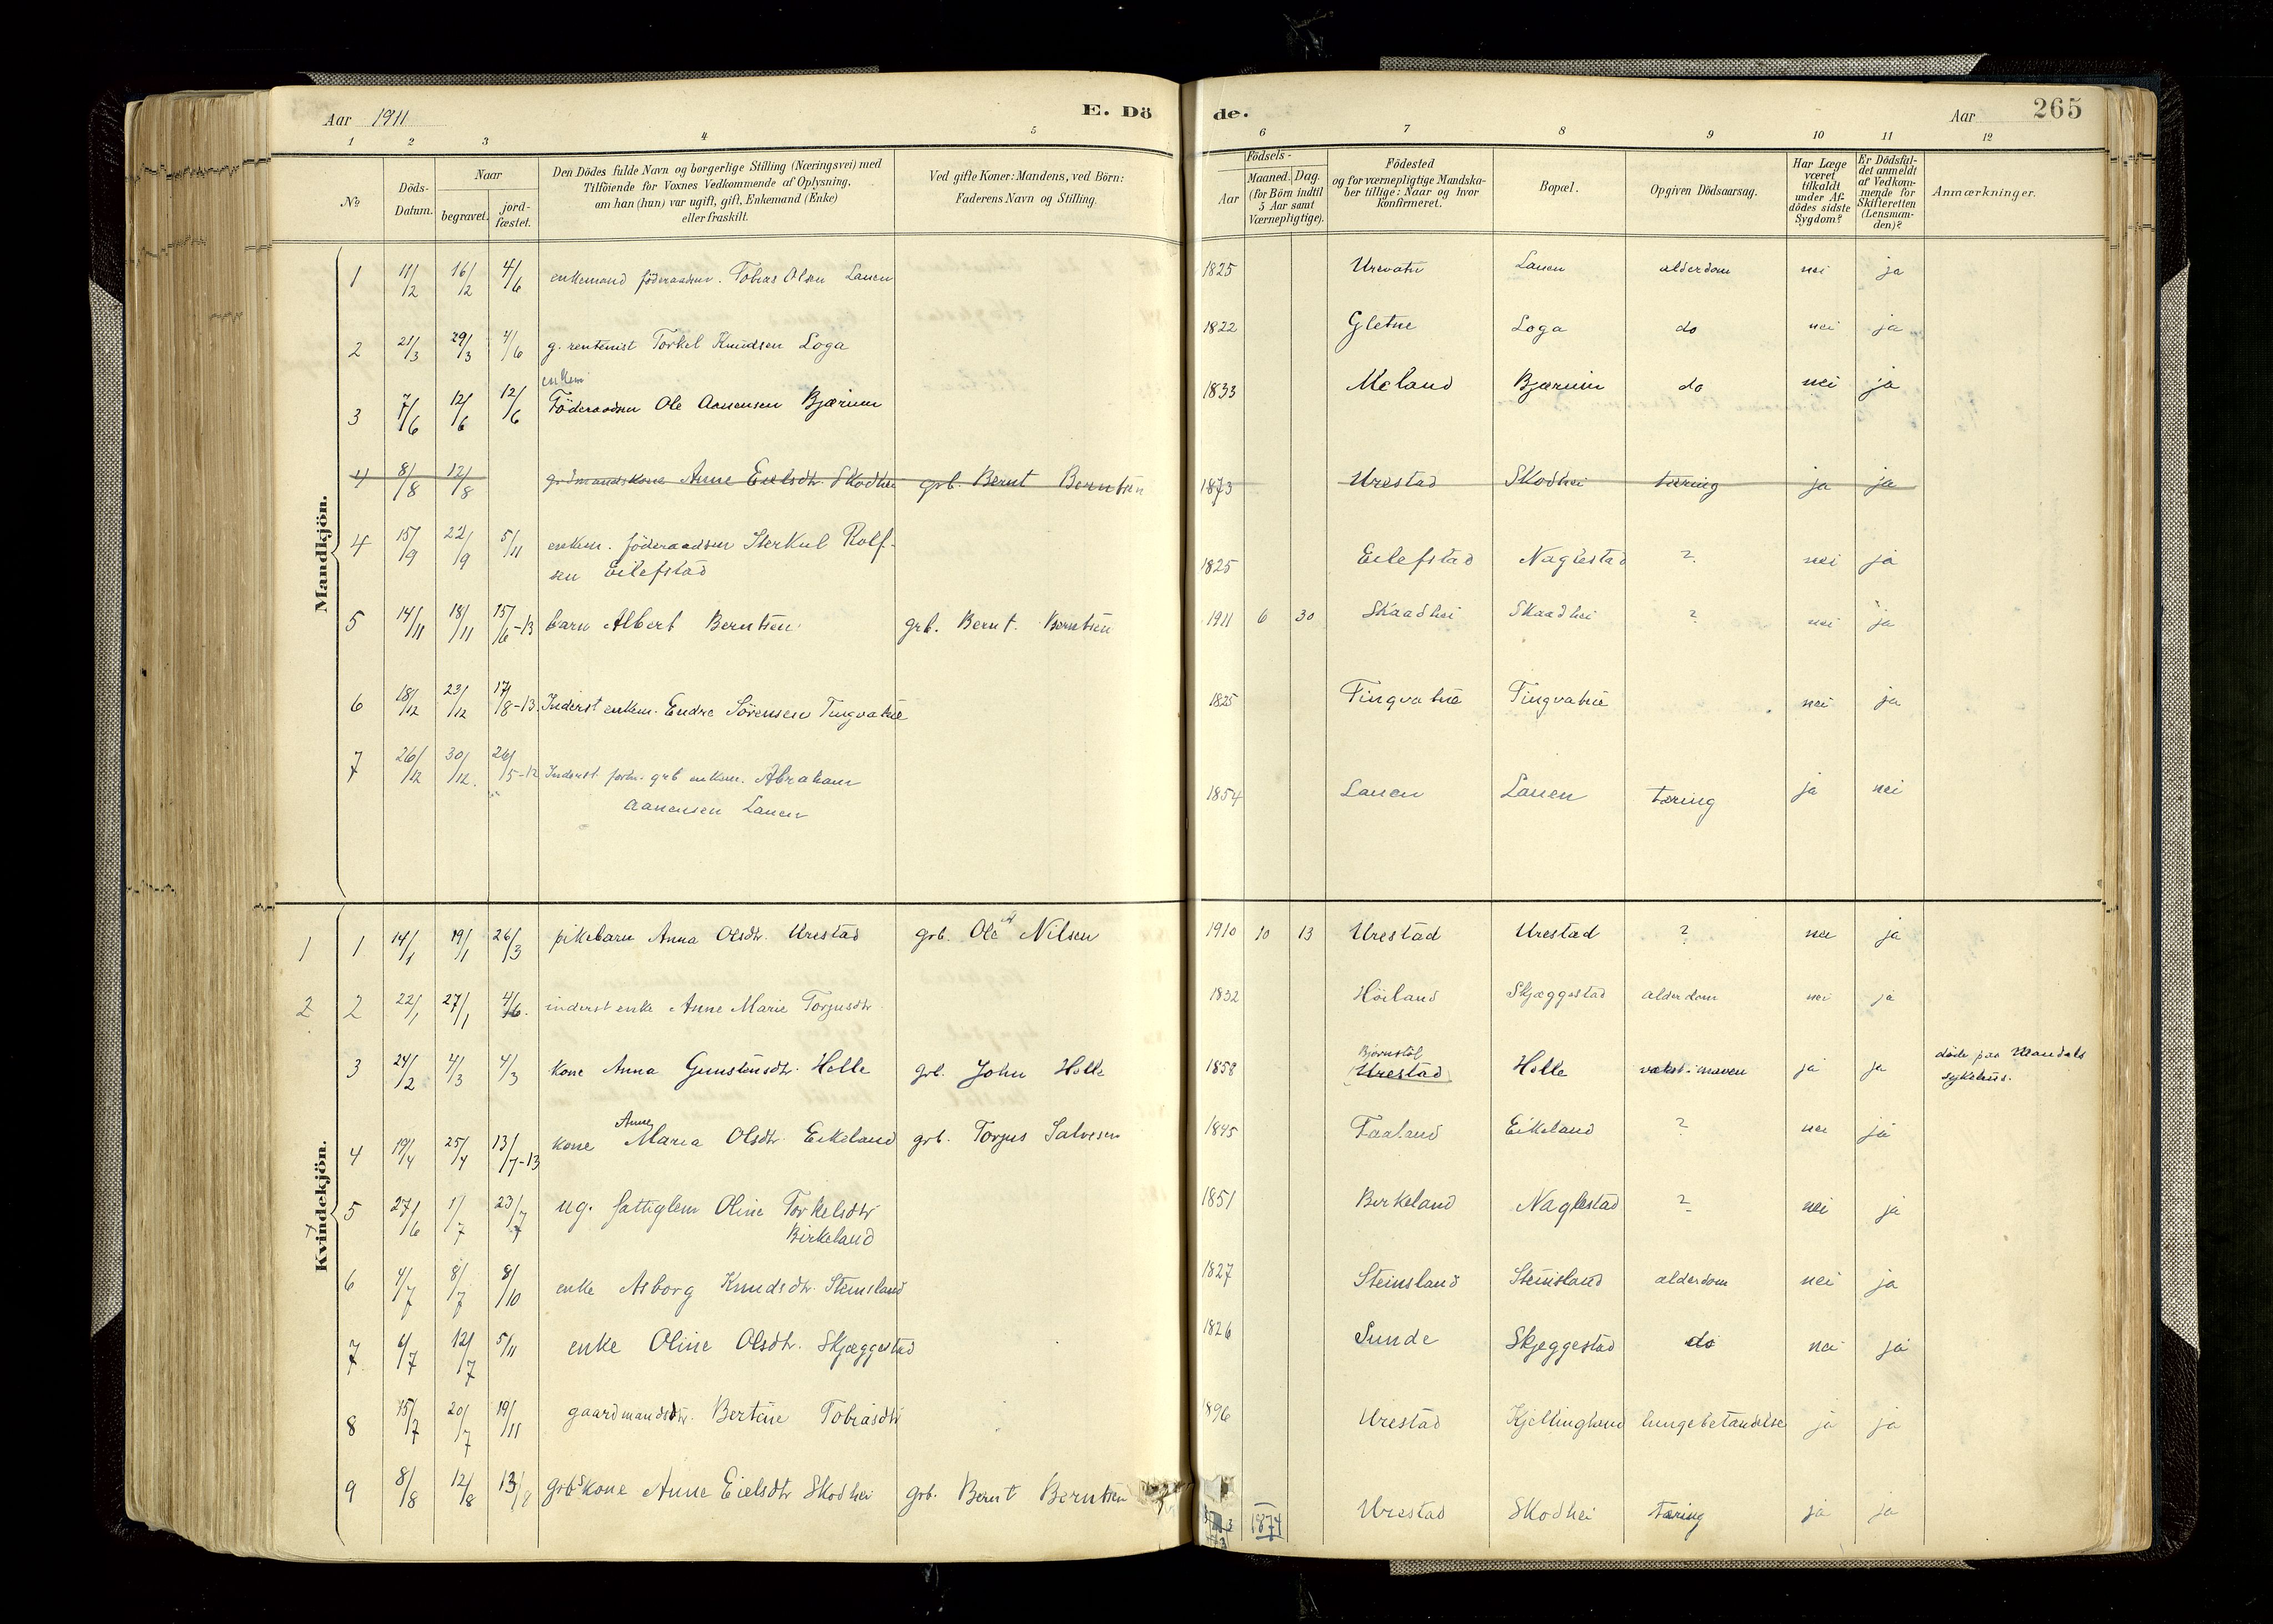 Aar 1911
E. Dö
de.
Aar
265
1 2 3 4 5 6 7 8 9 10 11 12
№
Döds-
Datum.
Naar
begravet.
jord-
fæstet.
Den Dödes fulde Navn og borgerlige Stilling (Næringsvei) med
Tilföiende for Voxnes Vedkommende af Oplysning,
om han (hun) var ugift, gift, Enkemand (Enke)
eller fraskilt.
Ved gifte Koner: Mandens, ved Börn:
Faderens Navn og Stilling.
Födsels-
Aar
Maaned. Dag.
(for Börn indtil
5 Aar samt
Værnepligtige).
Födested
og for værnepligtige Mandska-
ber tillige: Naar og hvor
konfirmeret.
Bopæl.
Opgiven Dödsaarsag.
Har Læge
været
tilkaldt
under Af-
dödes sidste
Sygdom?
Er Dödsfal-
det anmeldt
af Vedkom-
mende for
Skifteretten
(Lensman-
den)?
Anmærkninger.
Mandkjön.
1 11/2 16/2 4/6 enkemand föderaadsm. Tobias Olsen Lauen 1825 Urevatn Lauen alderdom nei ja
2 21/3 29/3 4/6 g. rentenist Torkel Knudsen Loga 1822 Gletne Loga do nei ja
enkem
3 7/6 12/6 12/6 Föderaadsm Ole Aanensen Bjærum 1833 Meland Bjærum do nei ja
4 8/8 12/8 grdmandskone Anne Eielsdtr. Skodhei grb. Bernt Berntsen 1873 Urestad Skodhei tæring ja ja
4 15/9 22/9 5/11 enkem. föderaadsm Sterkul Rolf-
sen Eilefstad 1825 Eilefstad Naglestad ? nei ja
5 14/11 18/11 15/6-13 barn Albert Berntsen grb. Bernt Berntsen 1911 6 30 Skaadhei Skaadhei ? nei ja
6 18/12 23/12 17/8-13 Inderst enkem. Endre Sörensen Tingvatne 1825 Tingvatne Tingvatne nei ja
7 26/12 30/12. 26/5-12 Inderst forh. grb enkem. Abraham
Aanensen Lauen 1854 Lauen Lauen tæring ja nei
Kvindekjön.
1 1 14/1 19/1 26/3 pikebarn Anna Olsdtr. Urestad grb. Ole Nilsen 1910 10 13 Urestad Urestad ? nei ja
2 2 22/1 27/1 4/6. inderst enke Anne Marie Torjusdtr 1832 Höiland Skjæggestad alderdom nei ja
Bjørnstøl
3 24/2 4/3 4/3 kone Anna Gunstensdtr. Helle grb. John Helle 1858 Urestad Helle vækst i maven ja ja döde paa Mandals
sykehus.
Anne
4 19/4 25/4 13/7-13 kone Maria Olsdtr. Eikeland grb. Torjus Salvesen 1845 Faaland Eikeland ? nei ja
5 27/6 1/7 23/7 ug. fattiglem Oline Torkelsdtr
Birkeland 1851 Birkeland Naglestad ? nei ja
6 4/7 8/7 8/10 enke Asborg Knudsdtr. Steinsland 1827 Steinsland Steinsland alderdom nei ja
7 6/7 12/7 5/11 enke Oline Olsdtr. Skjæggestad 1826 Sunde Skjeggestad do nei ja
8 15/7 20/7 19/11 gaardmandsdtr. Bertine Tobiasdtr 1896 Urestad Kjellingland lungebetændelse ja ja
9 8/8 12/8 13/8 grbskone Anne Eielsdtr Skodhei grb. Bernt Berntsen 1874 Urestad Skodhei tæring ja ja